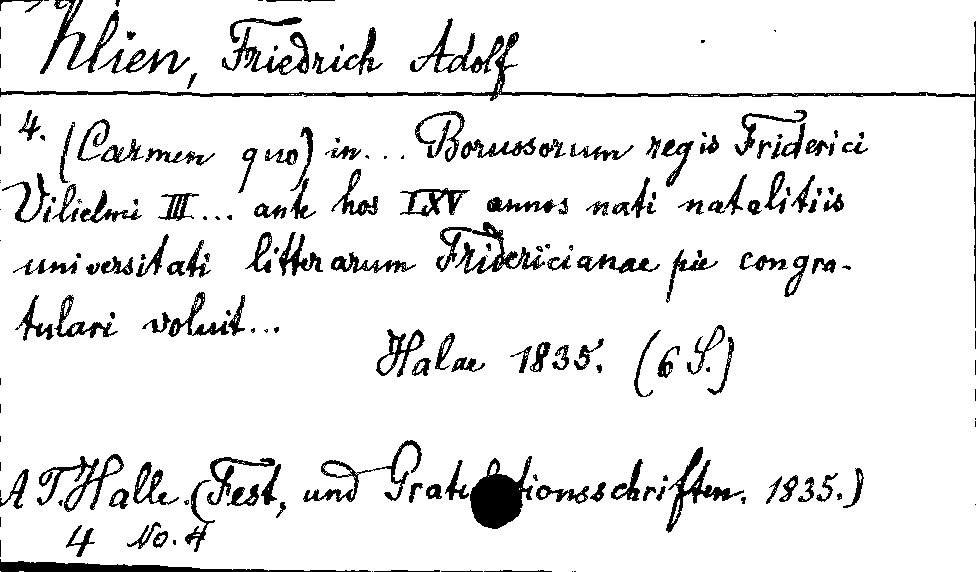 Klien, Friedrich Adolf
4. (Carmen quo) in... Borussorum regis Friderici
Vilielmi III... ante hos LXV annos nati natalitiis
universitati litterarum Fridericianae pie congra-
tulari voluit...
Halae 1835. (6 S.)
A T. Halle. (Fest, und Grat tionsschriften. 1835.)
4 No. 4